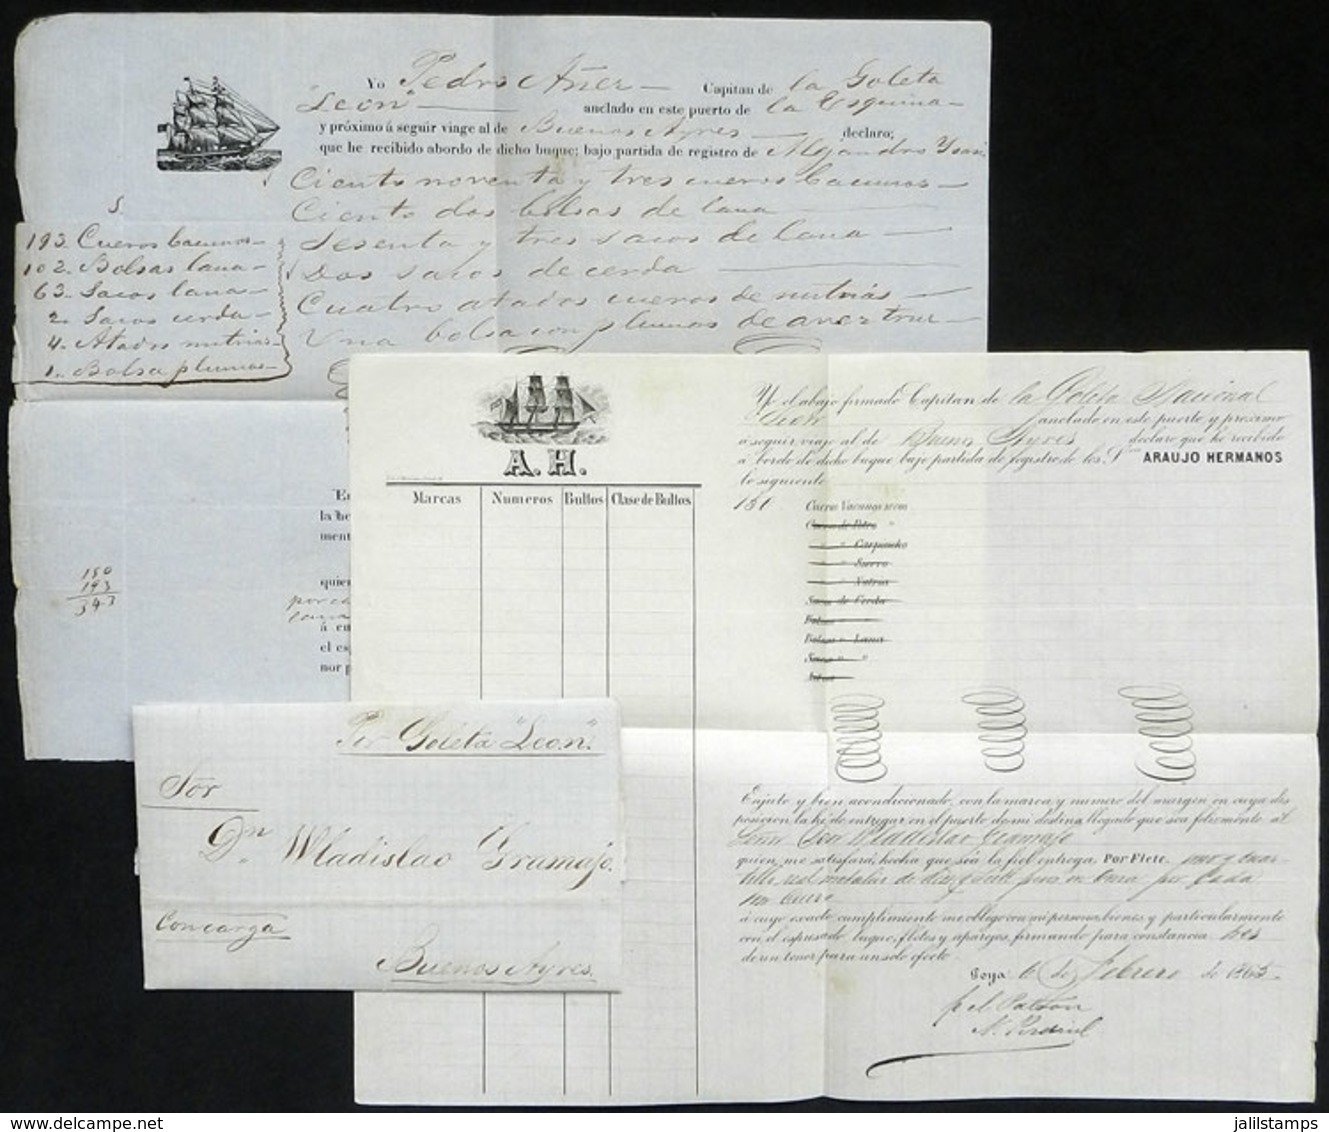 Yo Pedro Añer Capitan de la Goleta
"Leon" anclado en este puerto de la Esquina
y próximo á seguir viage al de Buenos Ayres declaro;
que he recibido abordo de dicho buque; bajo partida de registro de Alejandro
Ciento noventa y tres cueros bacunos
Ciento dos bolsas de lana
Sesenta y tres sacos de lana
Dos sacos de cerda
Cuatro atados cueros de nutrias
Una bolsa con plumas de avestruz
193. Cueros bacunos
102. Bolsas lana
63. Sacos lana
2. Sacos cerda
4. Atados nutrias
1. Bolsa plumas
150
193
343
la he
ment
quier
por c
á cu
el es
nor p
A. H.
Marcas Numeros Bultos Clase de Bultos
Yo el abajo firmado Capitan de la Goleta Nacional
"Leon" anclado en este puerto y procsimo
á seguir viaje al de Buenos Ayres declaro que he recibido
á bordo de dicho buque bajo partida de registro de los Sres ARAUJO HERMANOS
lo siguiente
Cueros Vacunos secos
Cueros de Potro "
" " Carpincho
" " Nutrias
Sacos de Cerda
Bolsas " Lana
Sacos " "
Enjuto y bien acondicionado, con la marca y numero del margen en cuya dis
posicion la he de entregar en el puerto de mi destino, llegado que sea felizmente al
Señor Don Wladislao Gramajo
quien me satisfará, hecha que sea la fiel entrega, Por Flete
á cuyo exacto cumplimiento me obligo con mi persona, bienes, y particularmente
con el espresado buque, fletes y aparejos, firmando para constancia tres
de un tenor para un solo efecto.
Goya 6 de Febrero de 1865
p el Patron
Per Goleta "Leon"
Sor
Dn. Wladislao Gramajo.
Con carga
Buenos Ayres.
jalilstamps